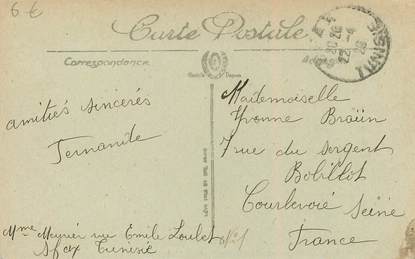 6 €
Carte Postale
Correspondance
TUNISIE
amitiés sincerés
Fernande
Mademoiselle
Yvonne Braün
7 rue du sergent
Bobillot
Courbevoie Seine
France
Mme Meunier rue Emile Loubet
Sfax Tunisie